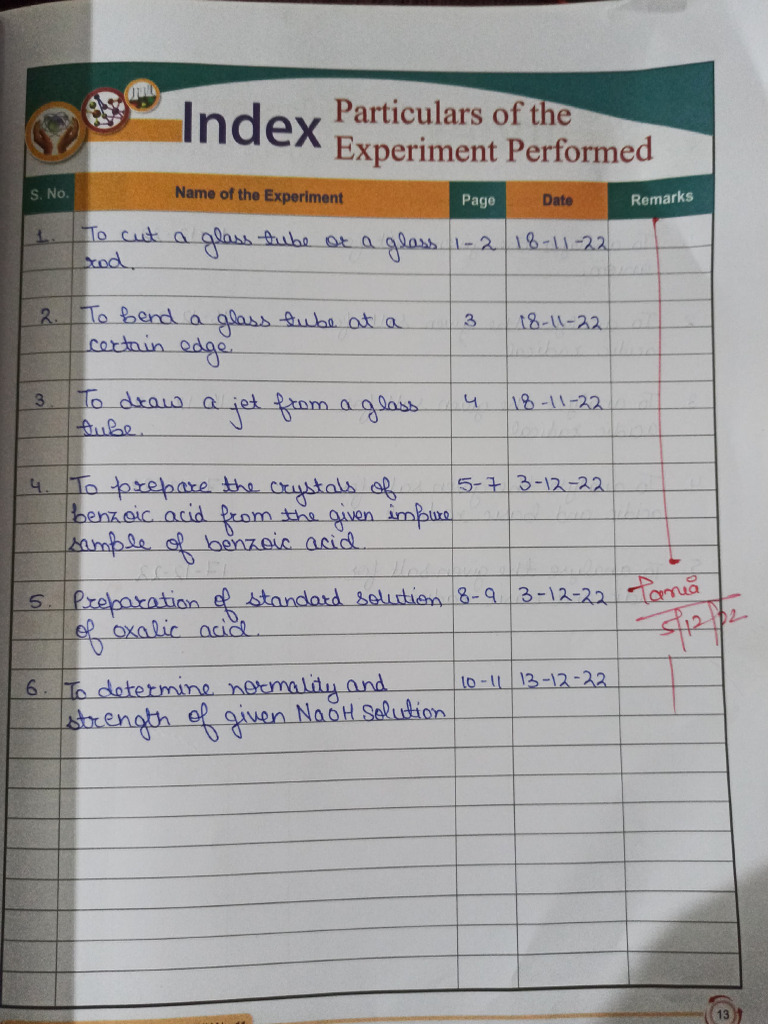 Index Particulars of the
Experiment Performed
S. No. Name of the Experiment Page Date Remarks
1. To cut a glass tube or a glass 1-2 18-11-22
rod.
2. To bend a glass tube at a 3 18-11-22
certain edge.
3. To draw a jet from a glass 4 18-11-22
tube.
4. To prepare the crystals of 5-7 3-12-22
benzoic acid from the given impure
sample of benzoic acid.
5. Preparation of standard solution 8-9 3-12-22 Tania
of oxalic acid. 5/12/22
6. To determine normality and 10-11 13-12-22
strength of given NaOH solution
13